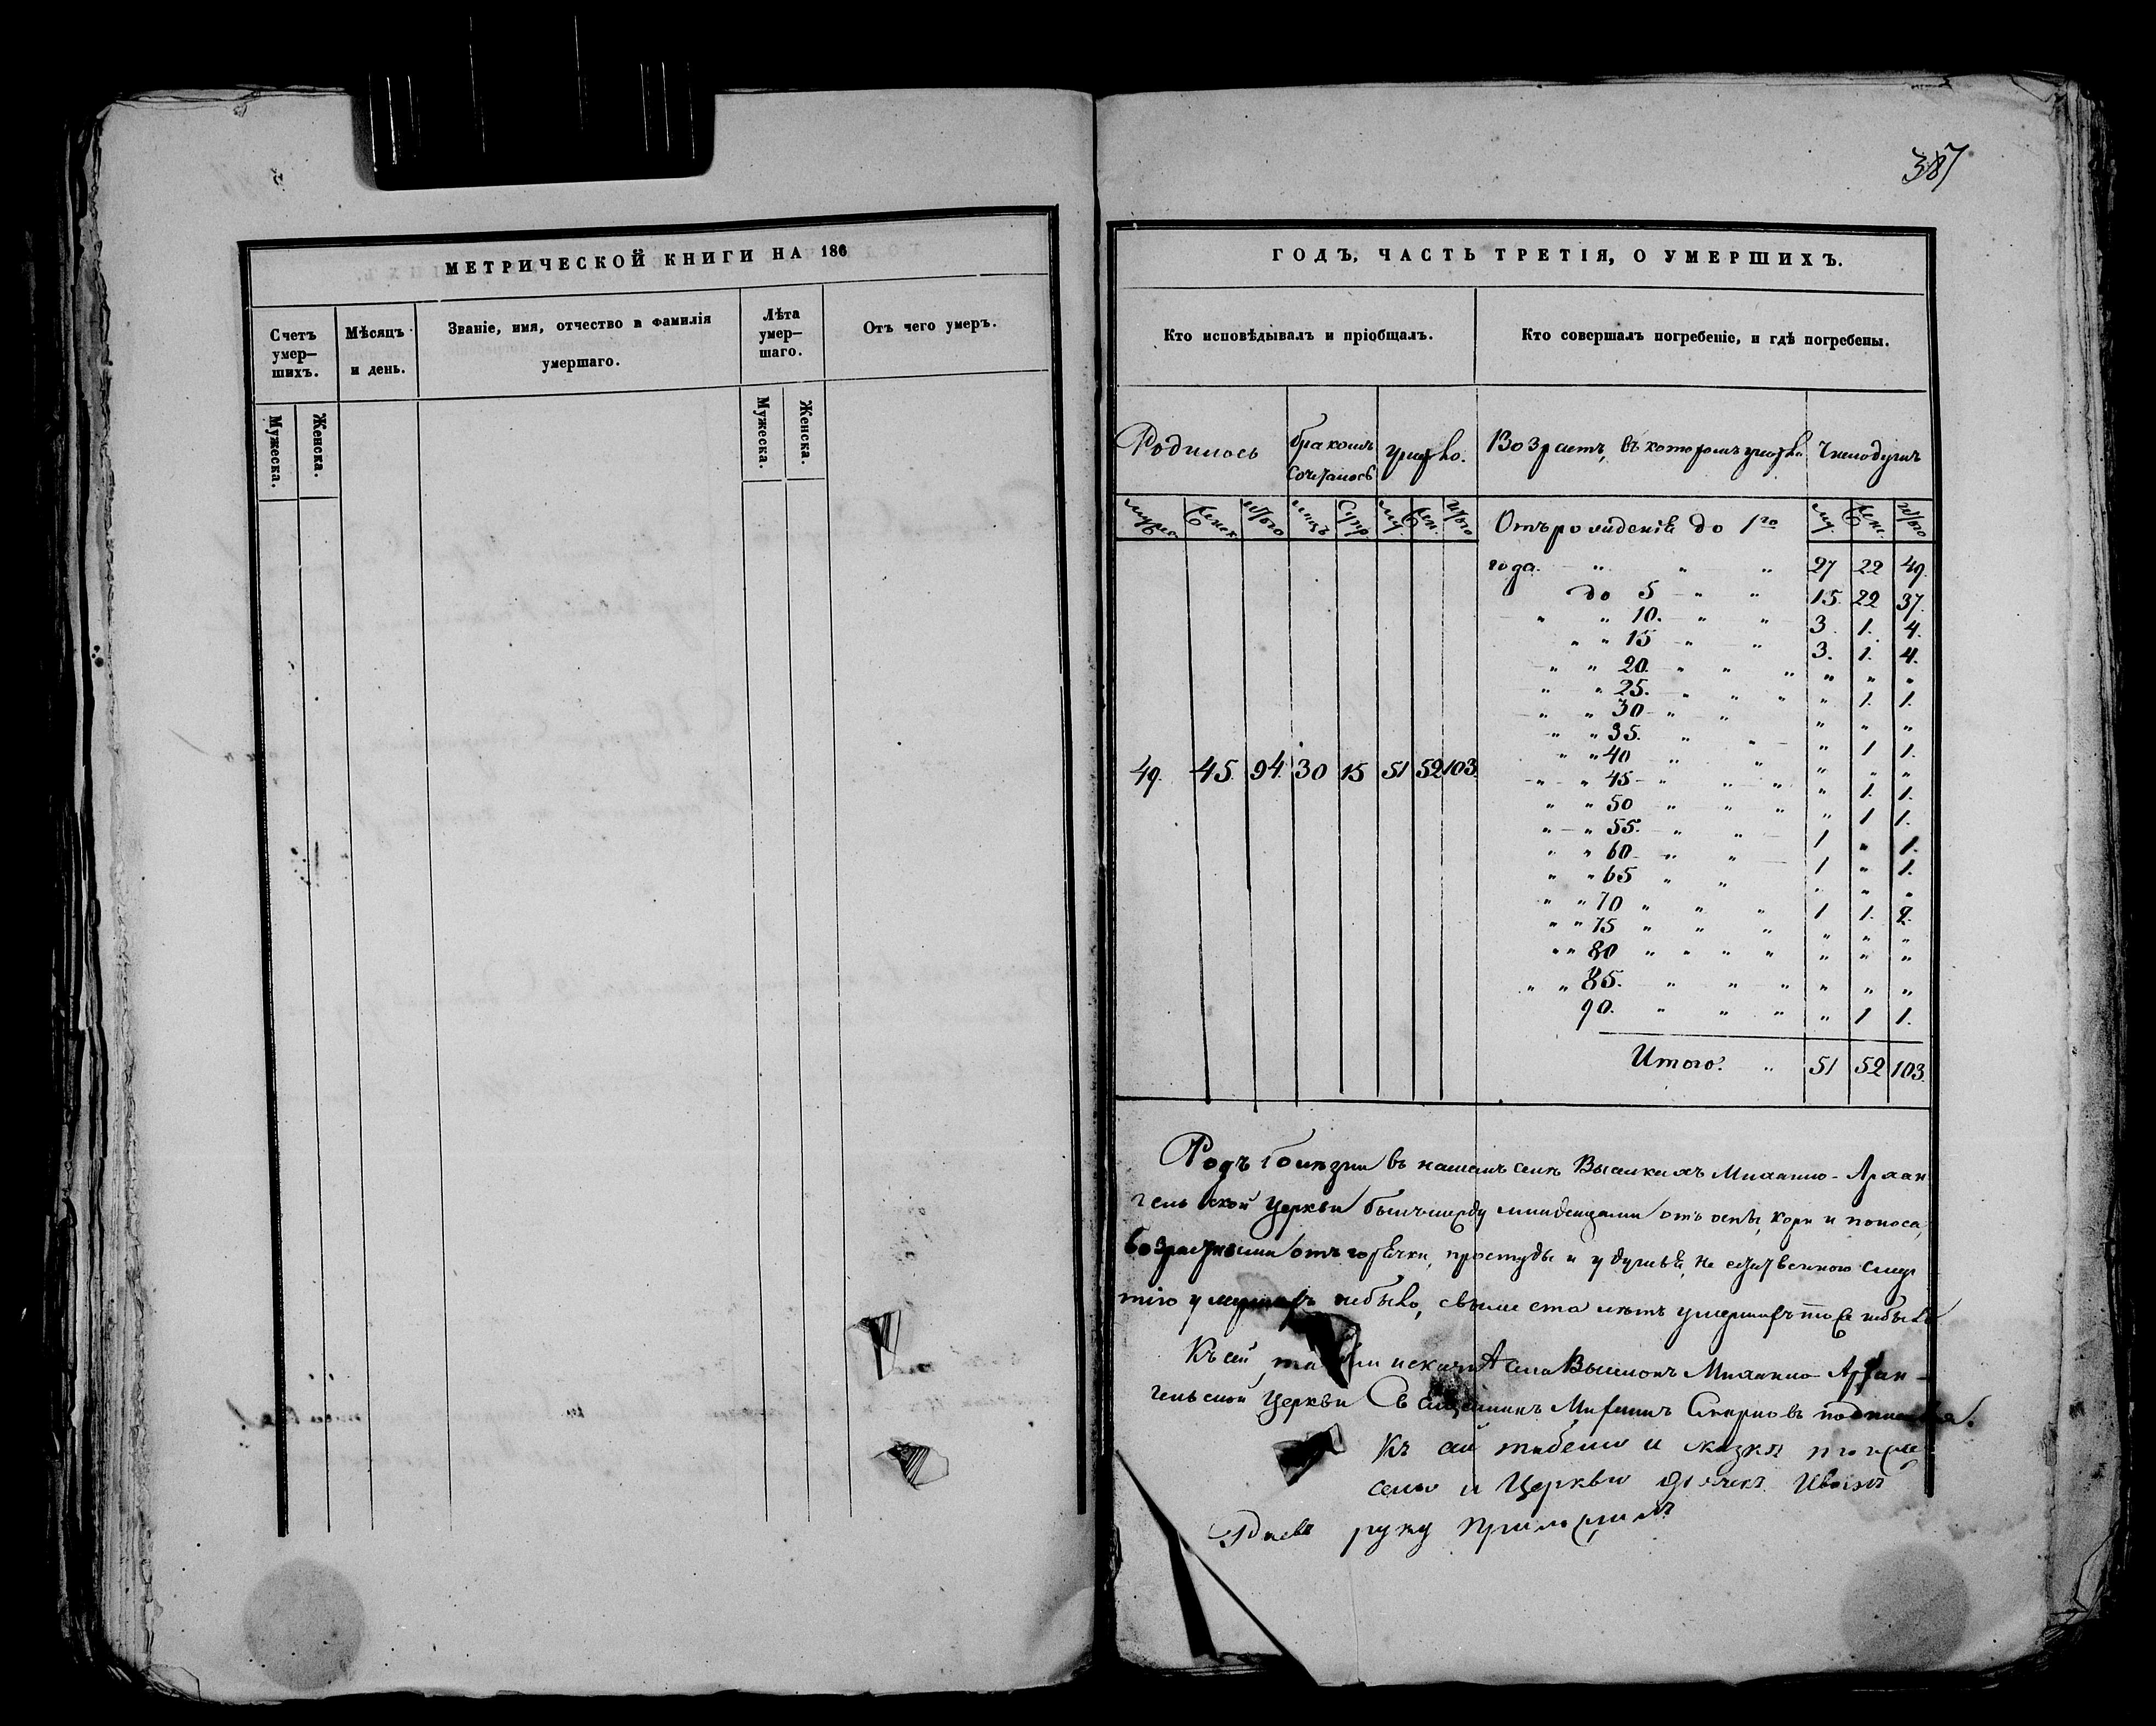 МЕТРИЧЕСКОЙ КНИГИ НА 186
Счетъ умер-шихъ.
Мѣсяцъ и день.
Званіе, имя, отчество и фамилія умершаго.
Лѣта умер-шаго.
Отъ чего умеръ.
Мужеска.
Женска.
Мужеска.
Женска.
387
ГОДЪ, ЧАСТЬ ТРЕТІЯ, О УМЕРШИХЪ.
Кто исповѣдывалъ и пріобщалъ.
Кто совершалъ погребеніе, и гдѣ погребены.
Родилось
бракомъ сочеталось
умерло.
Возрастъ, въ которомъ умерли
Число душъ
муж. Женск. Итого лицъ Супр. му. Жен. Итого
Отъ рожденія до 1го му. Жен. Итого
года. " " " 27 22 49.
до 5 " " 15. 22 37.
" " 10. " " 3. 1. 4.
" " 15 " " 3. 1. 4.
" " 20. " " " " " "
" " 25. " " " " 1. 1.
" " 30 " " " " "
" " 35. " " " 1 1.
" " 40 " " " " "
" " 45 " " " " 1. 1.
" " 50 " " " " 1 1.
" " 55. " " 1 " 1.
" " 60 " " 1 " 1.
" " 65 " " " " "
" " 70 " " " 1 1. 2.
" " 75 " " " " " "
" " 80 " " " " " " "
" " 85. " " " " " "
90. " " " " 1 1.
49. 45. 94. 30 15 51 52 103.
Итого: " 51 52 103.
Родъ болѣзни въ нашемъ селѣ Выселкахъ Михаило-Архан
гельской Церкви былъ между младенцами отъ оспы, кори и поноса,
возрастными отъ горячки, простуды и удушья, не естественною смер
тію умершихъ небыло, свыше ста лѣтъ умершихъ тоже небыло
Къ сей села Михаило-Архан-
гельской Церкви Священникъ Смирновъ подписался.
Къ сей табели и сказки тогоже
села и Церкви дьячекъ Иванъ
руку приложилъ